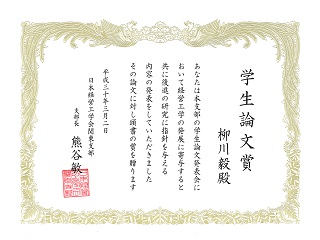 学生論文賞
柳川毅殿
あなたは本支部の学生論文発表会に
おいて経営工学の発展に寄与すると
共に後進の研究に指針を与える
内容の発表をしていただきました
その論文に対し頭書の賞を贈ります
平成三十年三月二日
日本経営工学会関東支部
支部長
熊谷敏